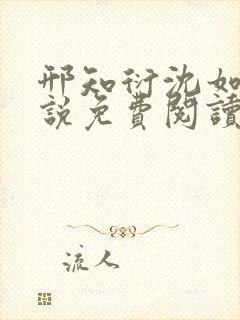 邢知衍沈如
說免費閱讀
流人